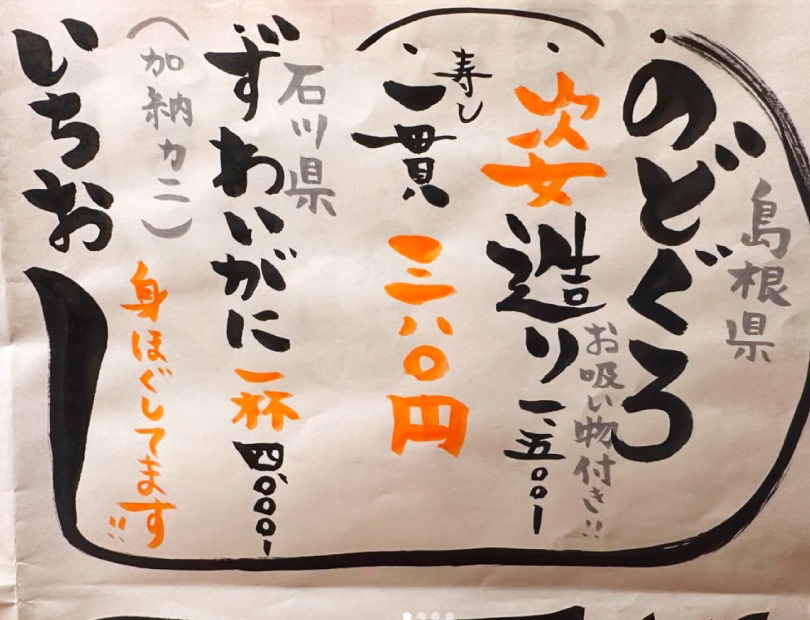 島根県
のどぐろ
お吸い物付き!!
・姿造り 一、五〇〇ー
寿し
・一貫 三八〇円
石川県
ずわいがに 一杯 四、〇〇〇ー
(加納カニ) 身ほぐしてます!!
いちおし